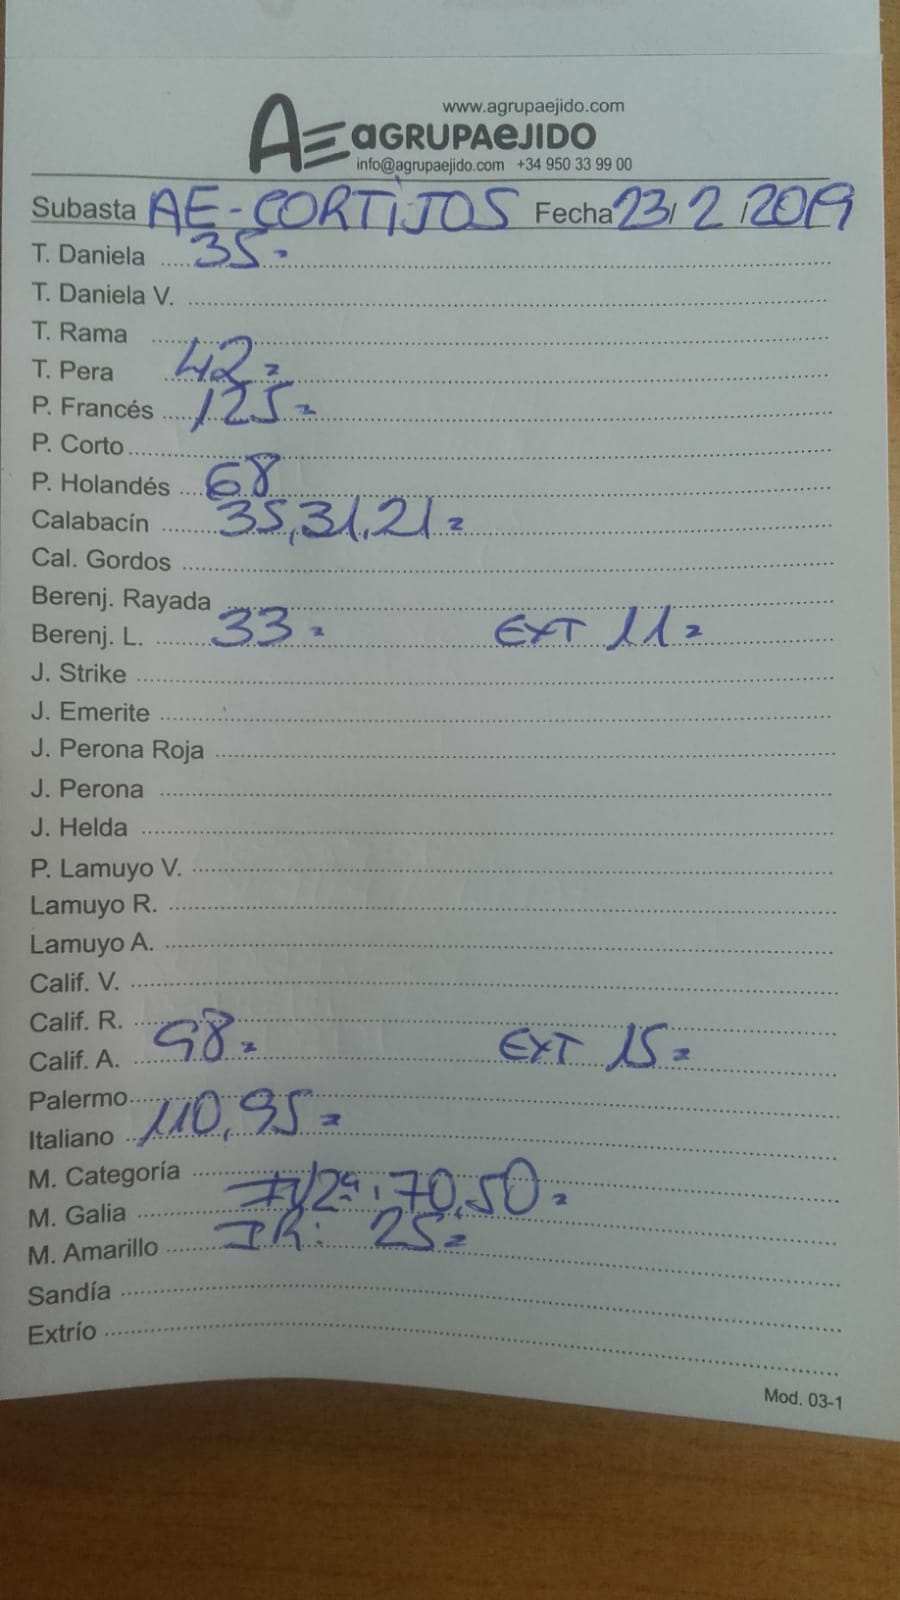 www.agrupaejido.com
AE aGRUPAeJIDO
info@agrupaejido.com +34 950 33 99 00
Subasta AE-CORTIJOS Fecha 23/2/2019
T. Daniela 35=
T. Daniela V.
T. Rama
T. Pera 42=
P. Francés 125=
P. Corto
P. Holandés 68
Calabacín 35,31,21=
Cal. Gordos
Berenj. Rayada
Berenj. L. 33= EXT 11=
J. Strike
J. Emerite
J. Perona Roja
J. Perona
J. Helda
P. Lamuyo V.
Lamuyo R.
Lamuyo A.
Calif. V.
Calif. R.
Calif. A. 98= EXT 15=
Palermo
Italiano 110,95=
M. Categoría
M. Galia 2ª: 70,50=
M. Amarillo IR: 25=
Sandía
Extrío
Mod. 03-1